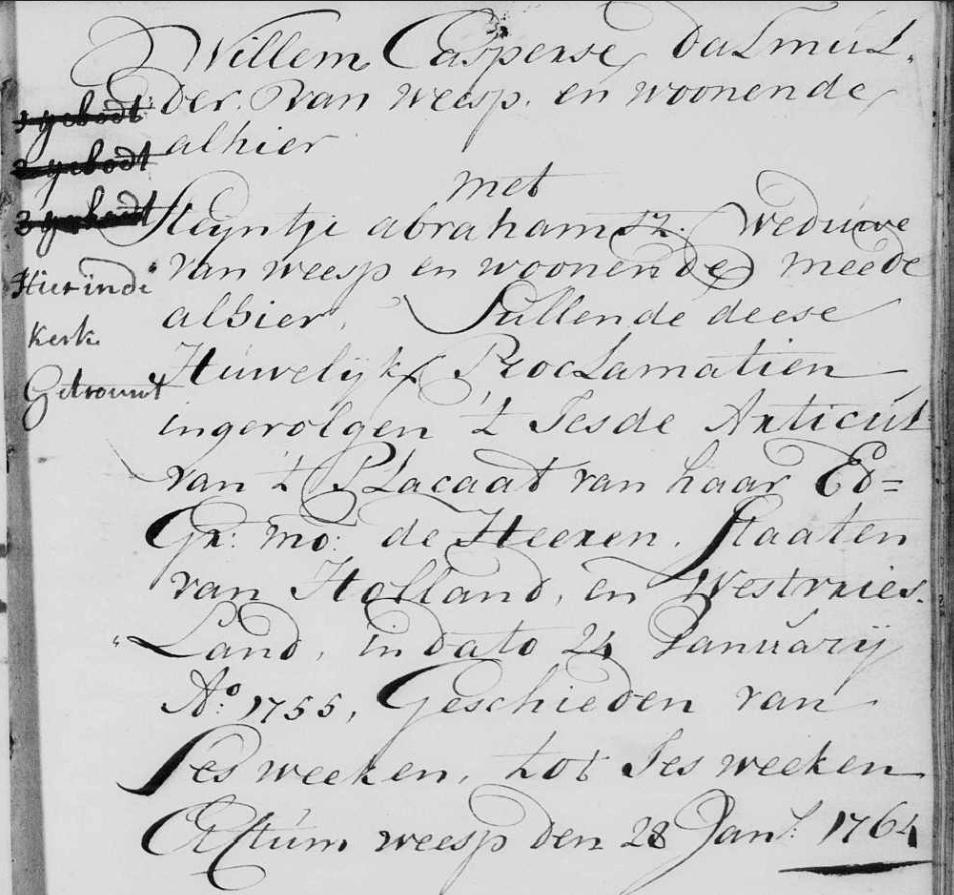 Willem Casperse Dalmul.
der. van weesp. en woonende
alhier
met
Heyntje abrahamsz. Weduwe
van weesp en woonende meede
alhier, Sullende deese
Huwelijks Proclamatien
ingevolgen 't Sesde Articul
van 't Placaat van haar Ed=
Gr: mo: de Heeren. Staaten
van Holland, en Westvries.
Land, in dato 24 Januarij
Ao: 1755, Geschieden van
Ses weeken, tot Ses weeken
Actum weesp den 28 Jan: 1764
1 gebodt
2 gebodt
3 gebodt
Hier inde
Kerk
Getrouwt